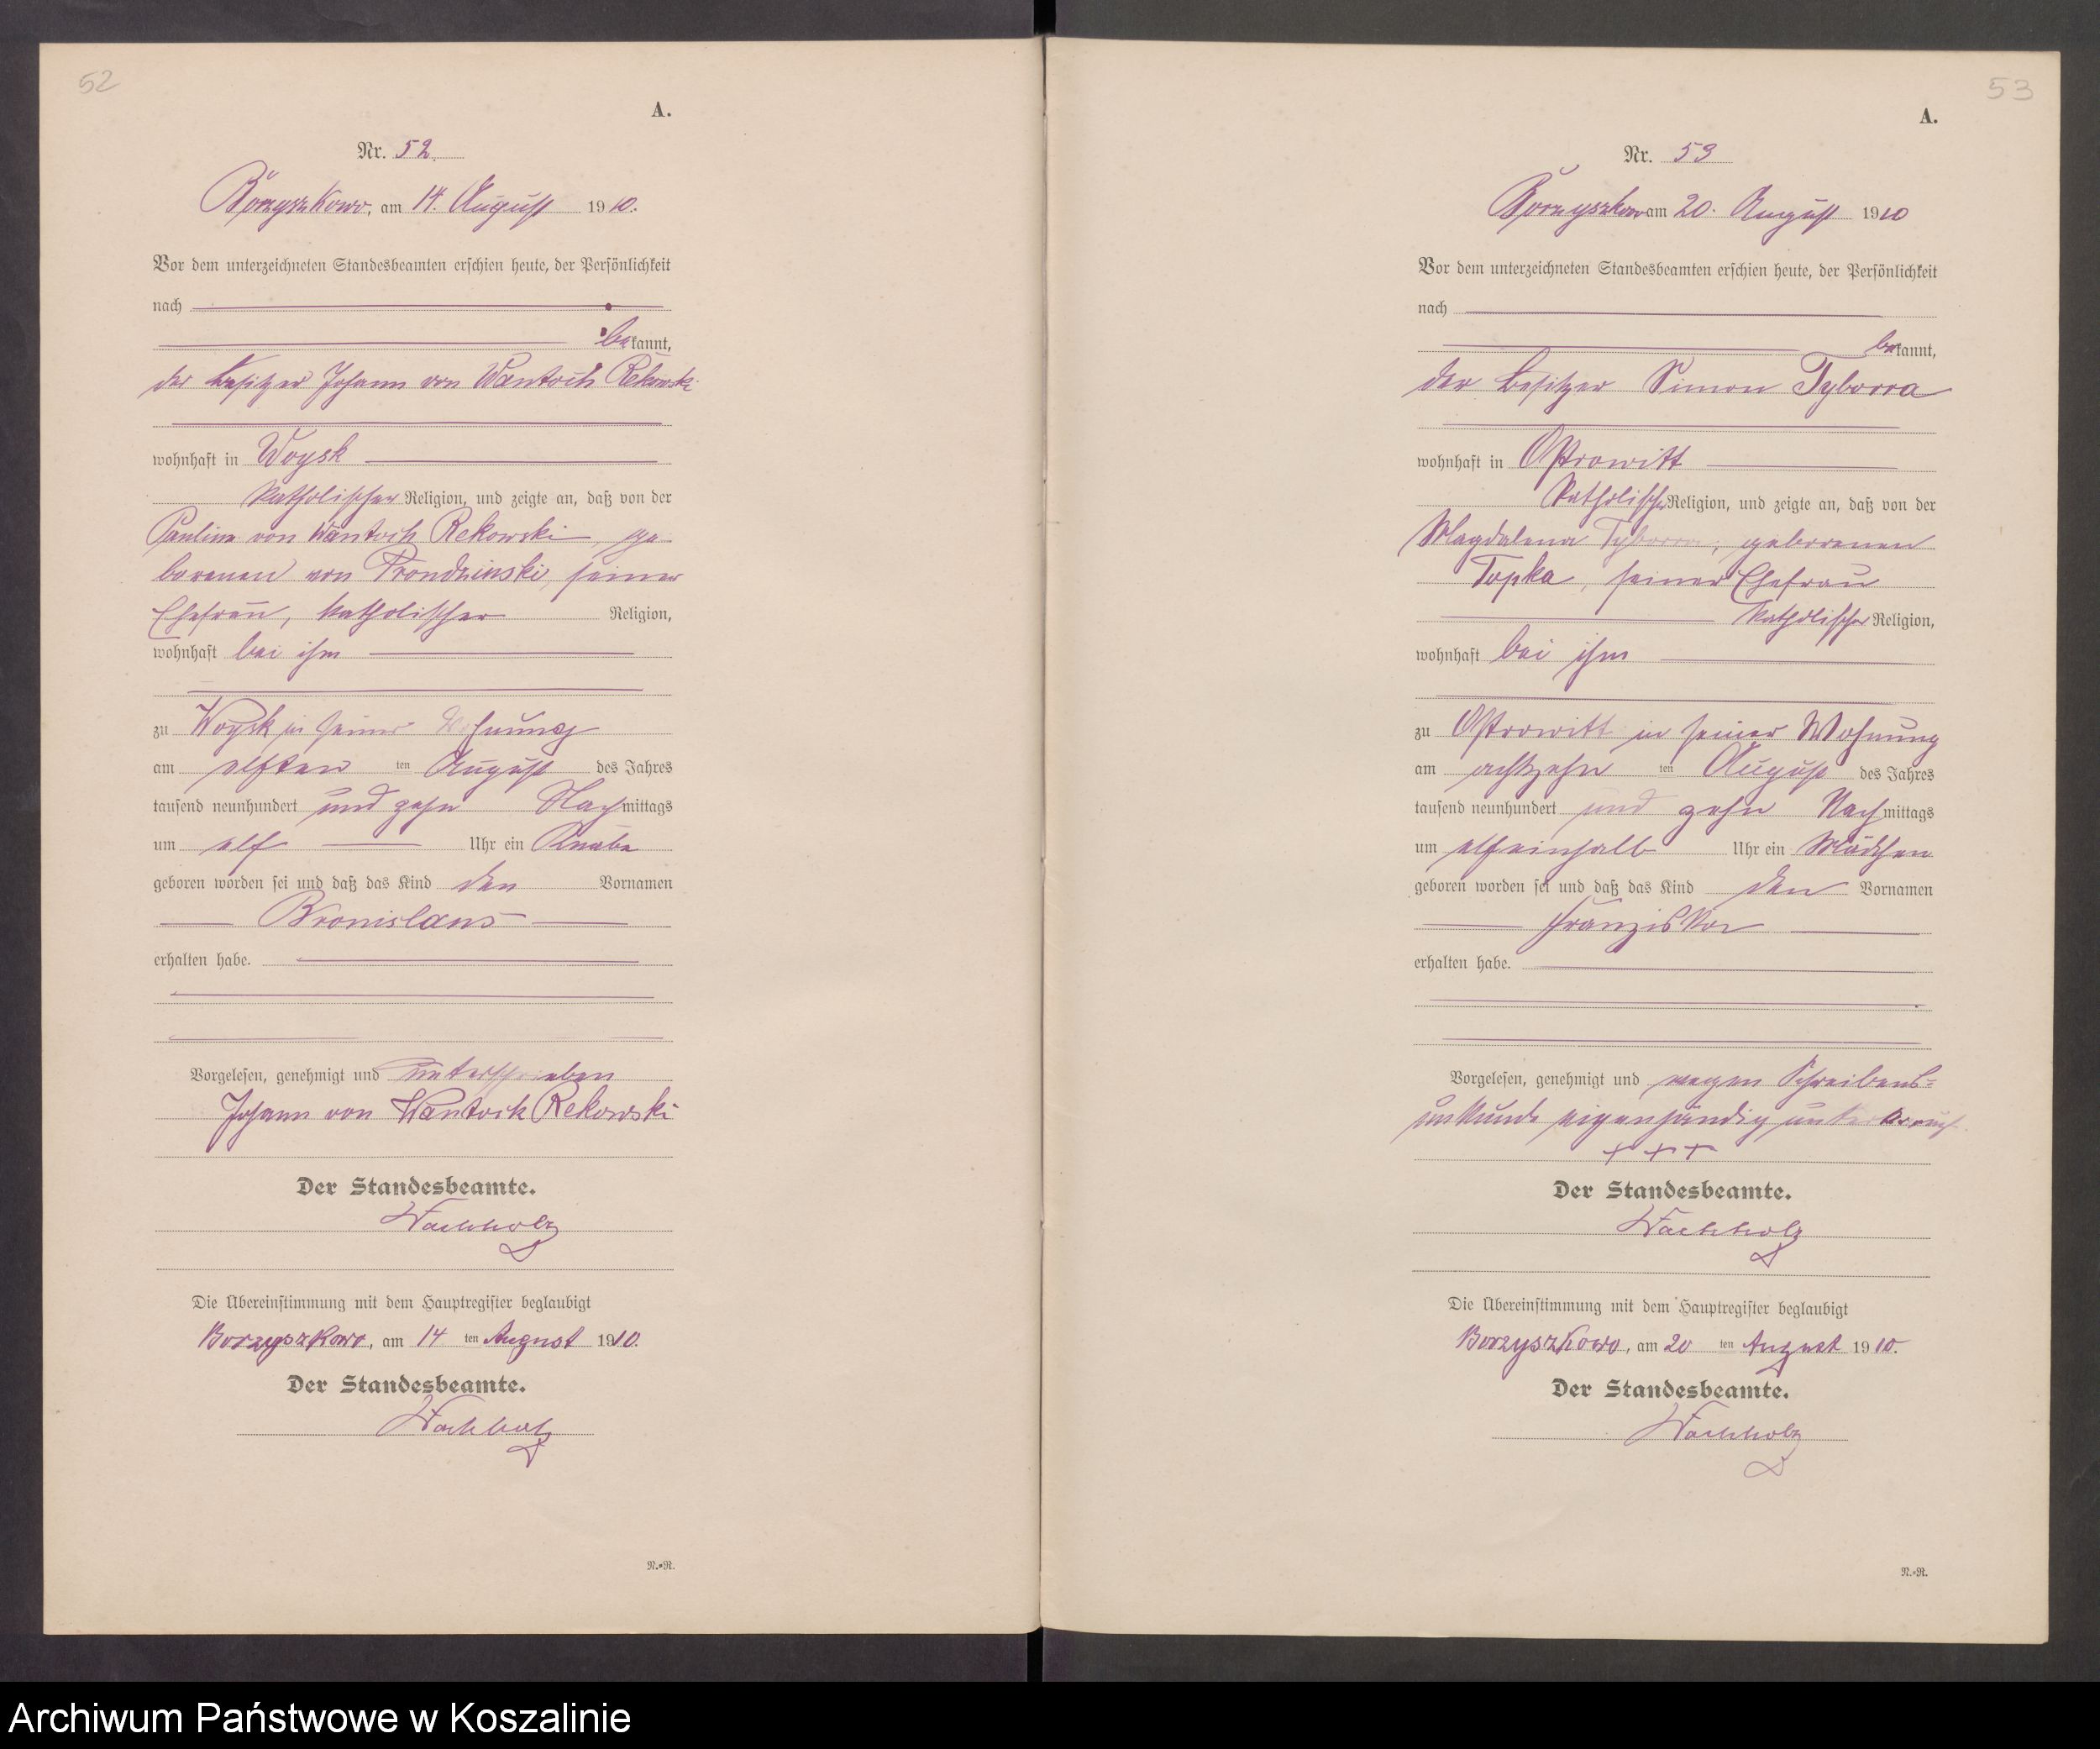 52
A.
Nr. 52.
Borzyszkowo, am 14. August 1910.
Vor dem unterzeichneten Standesbeamten erschien heute, der Persönlichkeit
nach
bekannt,
der Besitzer Johann von Wantoch Rekowski
wohnhaft in Woysk
katholischer Religion, und zeigte an, daß von der
Pauline von Wantoch Rekowski, ge-
borenen von Prondzinski, seiner
Ehefrau, katholischer Religion,
wohnhaft bei ihm
zu Woysk in seiner Wohnung
am elften ten August des Jahres
tausend neunhundert und zehn Nachmittags
um elf Uhr ein Knabe
geboren worden sei und daß das Kind den Vornamen
Bronislaus
erhalten habe.
Vorgelesen, genehmigt und unterschrieben
Johann von Wantoch Rekowski
Der Standesbeamte.
Wachholz
Die Übereinstimmung mit dem Hauptregister beglaubigt
Borzyszkowo, am 14 ten August 1910.
Der Standesbeamte.
Wachholz
N.=R.
53
A.
Nr. 53
Borzyszkowo am 20. August 1910
Vor dem unterzeichneten Standesbeamten erschien heute, der Persönlichkeit
nach
bekannt,
der Besitzer Simon Tyborra
wohnhaft in Ostrowitt
katholischer Religion, und zeigte an, daß von der
Magdalena Tyborra, geborenen
Topka, seiner Ehefrau
katholischer Religion,
wohnhaft bei ihm
zu Ostrowitt in seiner Wohnung
am achtzehn ten August des Jahres
tausend neunhundert und zehn Nachmittags
um elfeinhalb Uhr ein Mädchen
geboren worden sei und daß das Kind den Vornamen
Franziska
erhalten habe.
Vorgelesen, genehmigt und wegen Schreibens=
unkunde eigenhändig unterkreuzt
+++
Der Standesbeamte.
Wachholz
Die Übereinstimmung mit dem Hauptregister beglaubigt
Borzyszkowo, am 20 ten August 1910.
Der Standesbeamte.
Wachholz
N.=R.
Archiwum Państwowe w Koszalinie